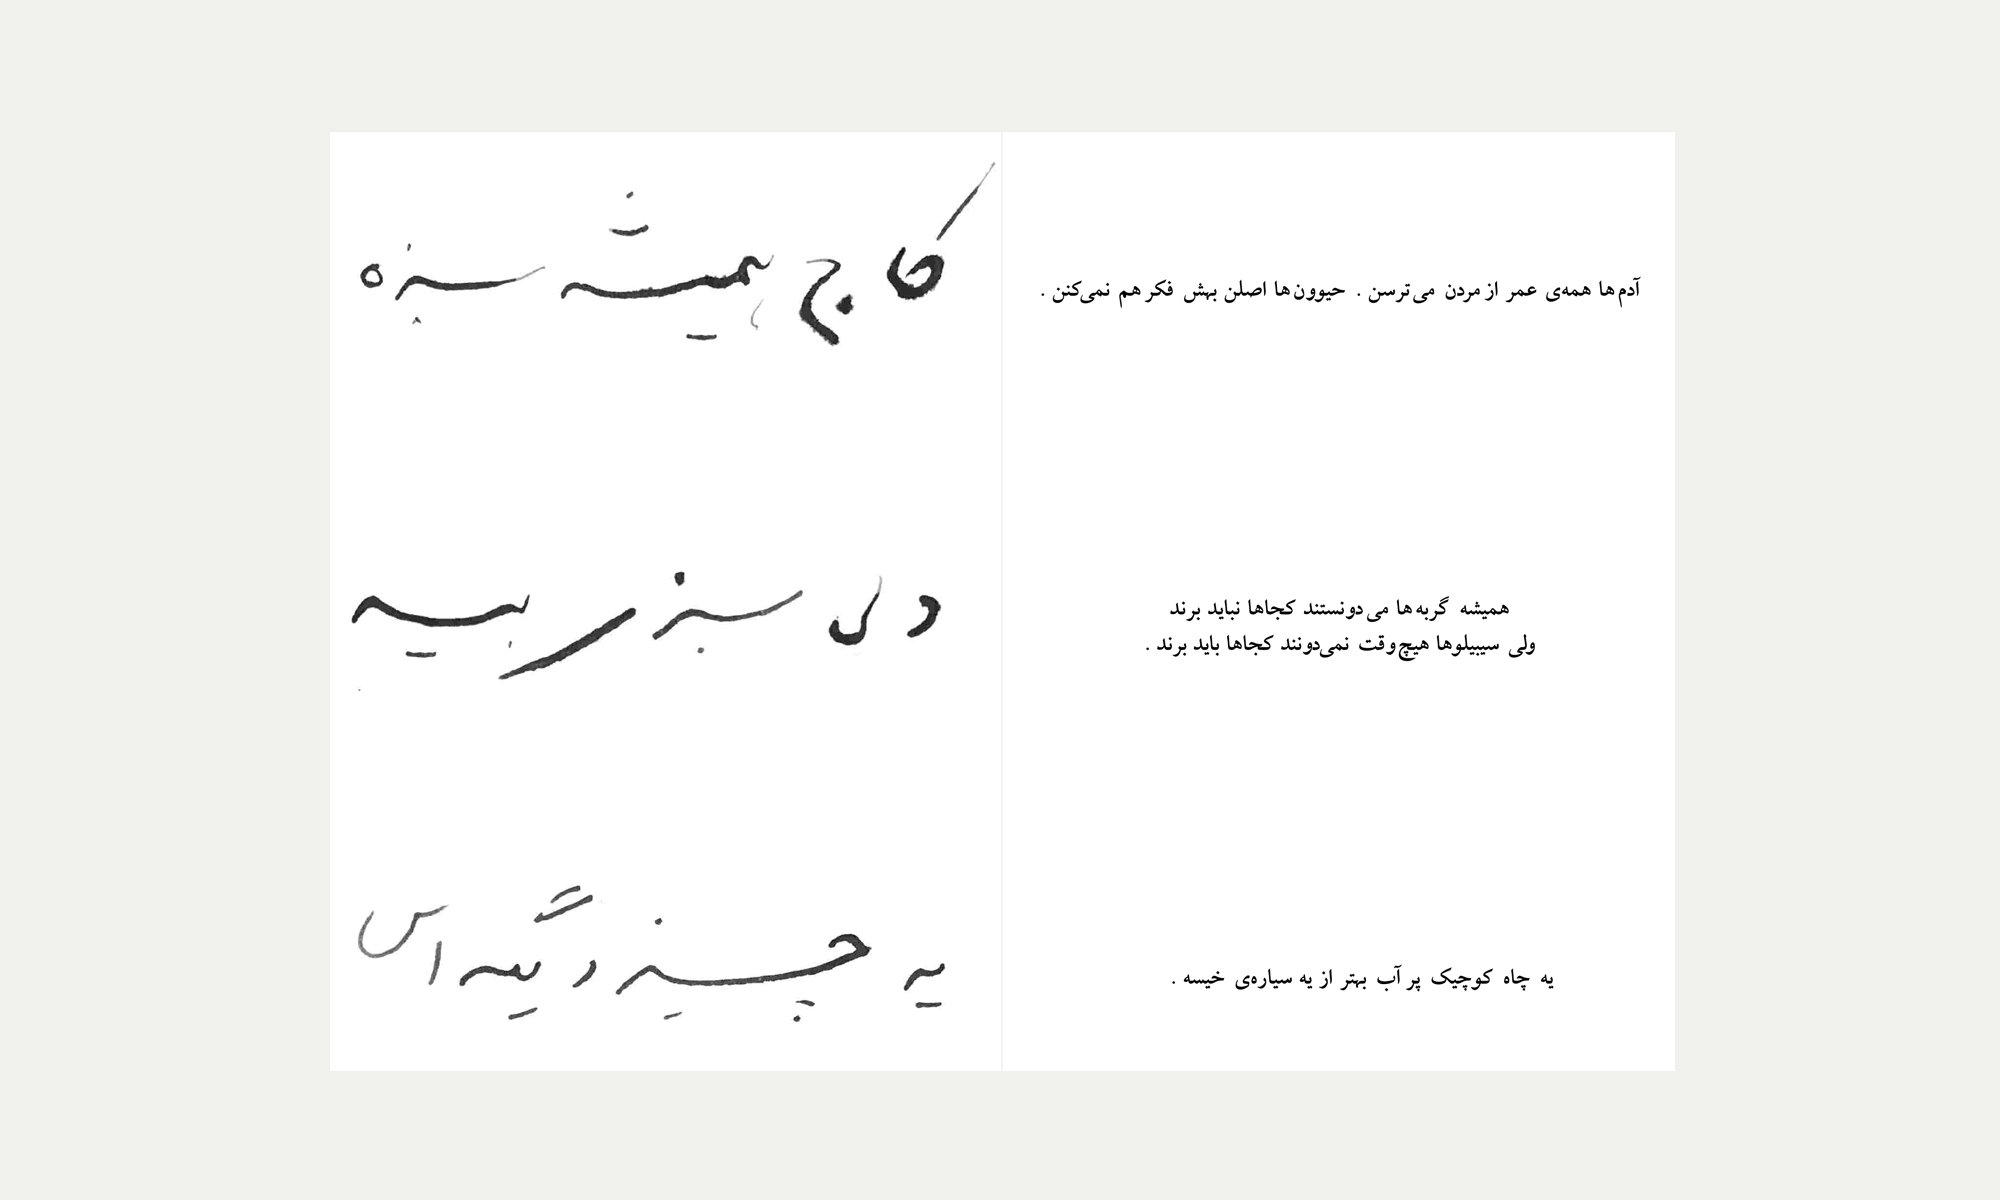 آدم‌ها همه‌ی عمر از مردن می‌ترسن . حیوون‌ها اصلن بهش فکر هم نمی‌کنن .
همیشه گربه‌ها می‌دونستند کجاها نباید برند
ولی سیبیلوها هیچ‌وقت نمی‌دونند کجاها باید برند .
یه چاه کوچیک پر آب بهتر از یه سیاره‌ی خیسه .
کاج همیشه سبزه
دلی سبز ر بیه
یه چیز دیگه اس